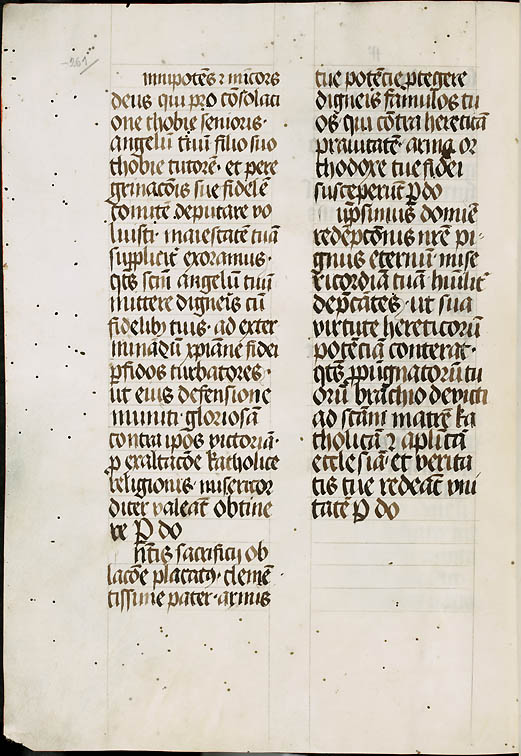 261
mnipotēs ⁊ miẜcors
deus qui pro cōsolati
one thobie senioris·
angelū tuū filio suo
thobie tutorē· et pere
grinacōis sue fidelē
comitē deputare vo
luisti· maiestatē tuā
suppliciť exoramus·
qťs scm̄ angelū tuū
mittere digneis cū
fidelibꝫ tuis· ad exter
minādū xpiane fidei
ꝑfidos turbatores·
ut eius defensione
muniti· gloriosā
contra ip̄os victoriā·
ꝓ exaltacōe katholice
religionis· misericor
diter valeāt obtine
re P do
hͣtis sacrificij ob
lacōe placatꝰ· clemē
tissime pater· armis
tue potēcie ꝓtegere
digneis famulos tu
os· qui cōtra hereticā
prauitatē· arma or
thodoxe tue fidei
susceperūt ꝑ do
upsimus domie
redēpcōnis nr̄e pi
gnus eternū· mise
ricordiā tuā hūiliť
dep̄cātes· ut sua
virtute hereticorū
potēciā conterat·
qťs ꝓpugnatorū tu
orū brachio deuicti
ad scām matrē ka
tholicā ⁊ aplicā
ecclesiā· et verita
tis tue redeāt vni
tatē P do